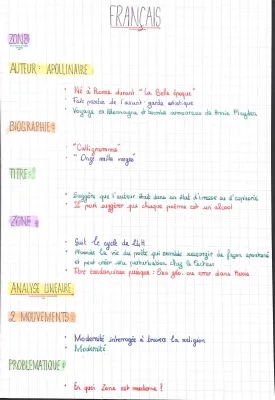 FRANÇAIS
ZONE
AUTEUR: APOLLINAIRE
• Né à Rome durant "La Belle époque"
• Fait partie de l'avant-garde artistique
• Voyage en Allemagne et tombe amoureux de Annie Playden
BIOGRAPHIE:
• "Calligramme"
• "Onze mille verges"
TITRE:
• Suggère que l'auteur était dans un état d'ivresse ou d'
• Il peut suggérer que chaque poème est un alcool
ZONE:
• Suit le cycle de 24H
• la vie du poète qui semble ressurgir de façon spontané
et peut créer une perturbation chez le lecteur
• ou error dans Paris
ANALYSE LINEAIRE
2 MOUVEMENTS:
• Modernité interrogée à travers la religion
• Modernité
PROBLEMATIQUE:
• En quoi Zone est moderne?